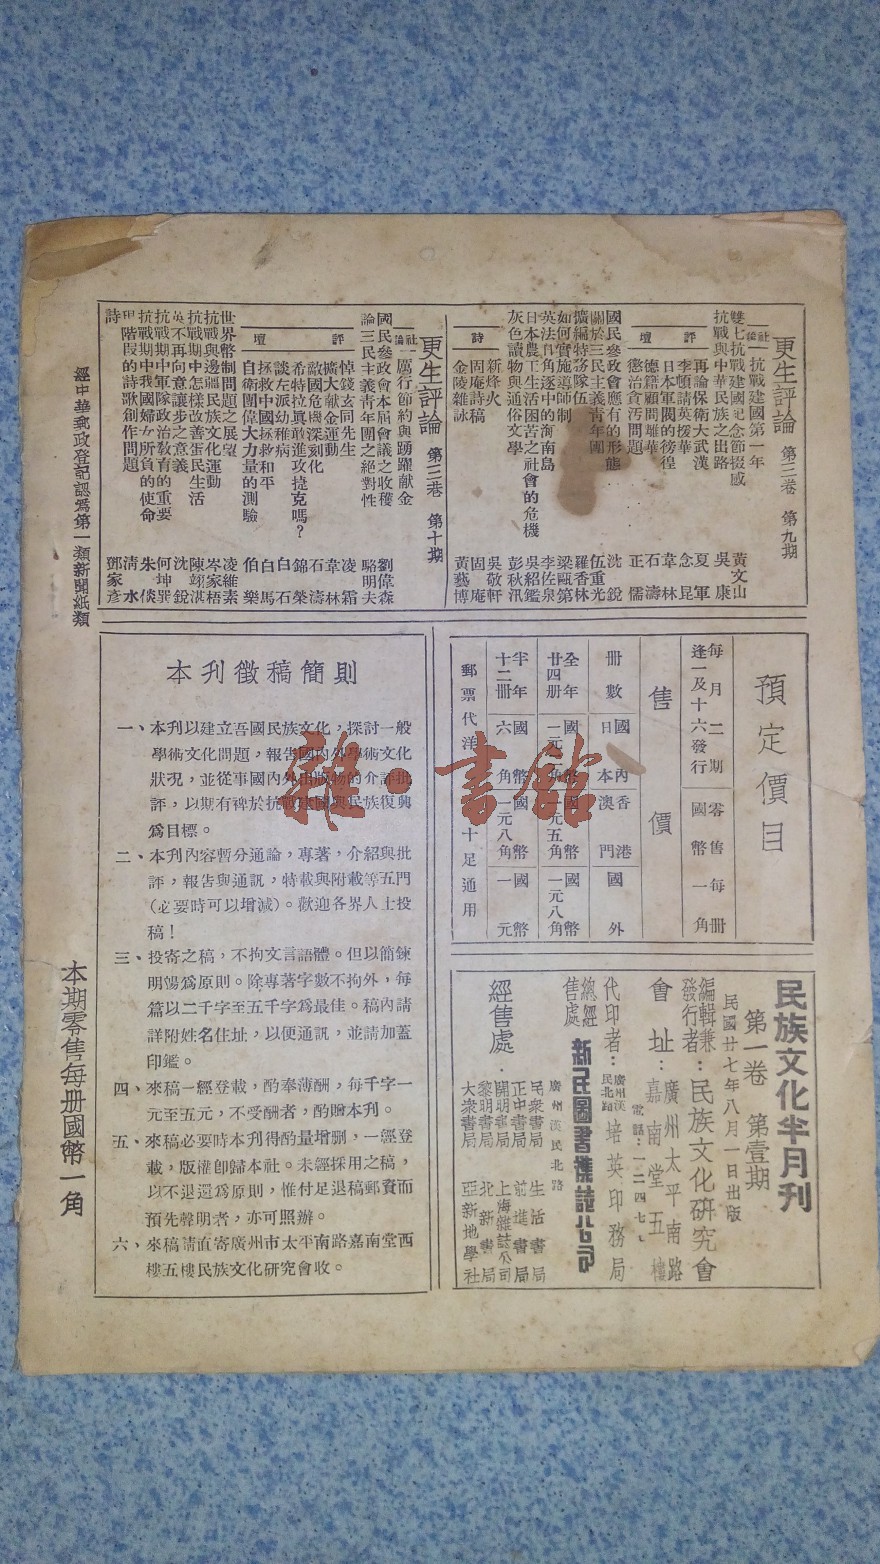 更生評論 第三卷 第九期
社論
抗戰建國第一年
雙七抗戰建國紀念節掇感 黃文山
抗戰與中華民族之出路 吳康
評壇
再論保衛大武漢 夏軍
李頓請英援華 念昆
日本軍閥的徬徨 韋林
德籍顧問離華 石濤
懲治貪汚問題 正儒
國民參政會應有的形態 沈銳
關於三民主義青年團 伍重光
擴編特務隊伍 羅香林
如何實施導師制 梁甌第
英法角逐中的海南島 李佐泉
日本農工生活困苦之社會的危機 吳紹鑑
灰色讀物與通俗文學 彭秋汛
詩
新烽火 吳敬軒
固庵詩稿 固庵
金陵雜詠 黃藝博
更生評論 第三卷 第十期
社論
厲行節約與踴躍獻金
國民參政會本屆會議之收穫 劉偉森
論三民主義青年團之絕對性 駱明夫
評壇
悼錢玄同先生 凌霜
擴大獻金運動 韋林
敵國危機深刻化 石濤
希特拉眞敢進攻捷克嗎？ 錦榮
談左派幼稚病 白石
拯救中國拯救和平 白馬
自衛團偉大力量的測驗 伯樂
世界幣制問題之展望 凌維素
抗戰與邊疆民族文化運動 岑家梧
抗戰期中怎樣改善蛋民生活 陳翊湛
英不再向意讓步之意義 沈銳
抗戰期中軍隊政治敎育的重要 何坤巽
抗戰期中我國婦女所負的使命 朱倓
現階段的詩歌創作問題 清水
詩 鄧家彥
經中華郵政登記認爲第一類新聞紙類
預定價目
每月二期 零售每册
逢一及十六發行 國幣一角
售價
册數 國內日本 香港澳門 國外
全年廿四册 國幣一元 國幣一元五角 國幣一元八角
半年十二册 國幣六角 國幣八角 國幣一元
郵票代洋十足通用
本刊徵稿簡則
一、本刊以建立吾國民族文化，探討一般
學術文化問題，報告國內外學術文化
狀況，並從事國內外出版物的介評批
評，以期有裨於抗戰建國與民族復興
爲目標。
二、本刊內容暫分通論，專著，介紹與批
評，報告與通訊，特載與附載等五門
（必要時可以增減）。歡迎各界人士投
稿！
三、投寄之稿，不拘文言語體。但以簡鍊
明暢爲原則。除專著字數不拘外，每
篇以二千字至五千字爲最佳。稿內請
詳附姓名住址，以便通訊，並請加蓋
印鑑。
四、來稿一經登載，酌奉薄酬，每千字一
元至五元，不受酬者，酌贈本刊。
五、來稿必要時本刊得酌量增删，一經登
載，版權卽歸本社。未經採用之稿，
以不退還爲原則，惟付足退稿郵資而
預先聲明者，亦可照辦。
六、來稿請直寄廣州市太平南路嘉南堂西
樓五樓民族文化研究會收。
民族文化半月刊
第一卷 第壹期
民國廿七年八月一日出版
編輯兼發行者：民族文化研究會
會址：廣州太平南路嘉南堂五樓
電話：一二四七七
代印者：廣州漢民北路培英印務局
總經售處 新民圖書雜誌公司
廣州漢民北路
經售處：
民衆書局 生活書局
正中書局 前進書局
開明書局 上海雜誌公司
黎明書局 北新書局
大衆書局 亞新地學社
本期零售每册國幣一角
雜·書館